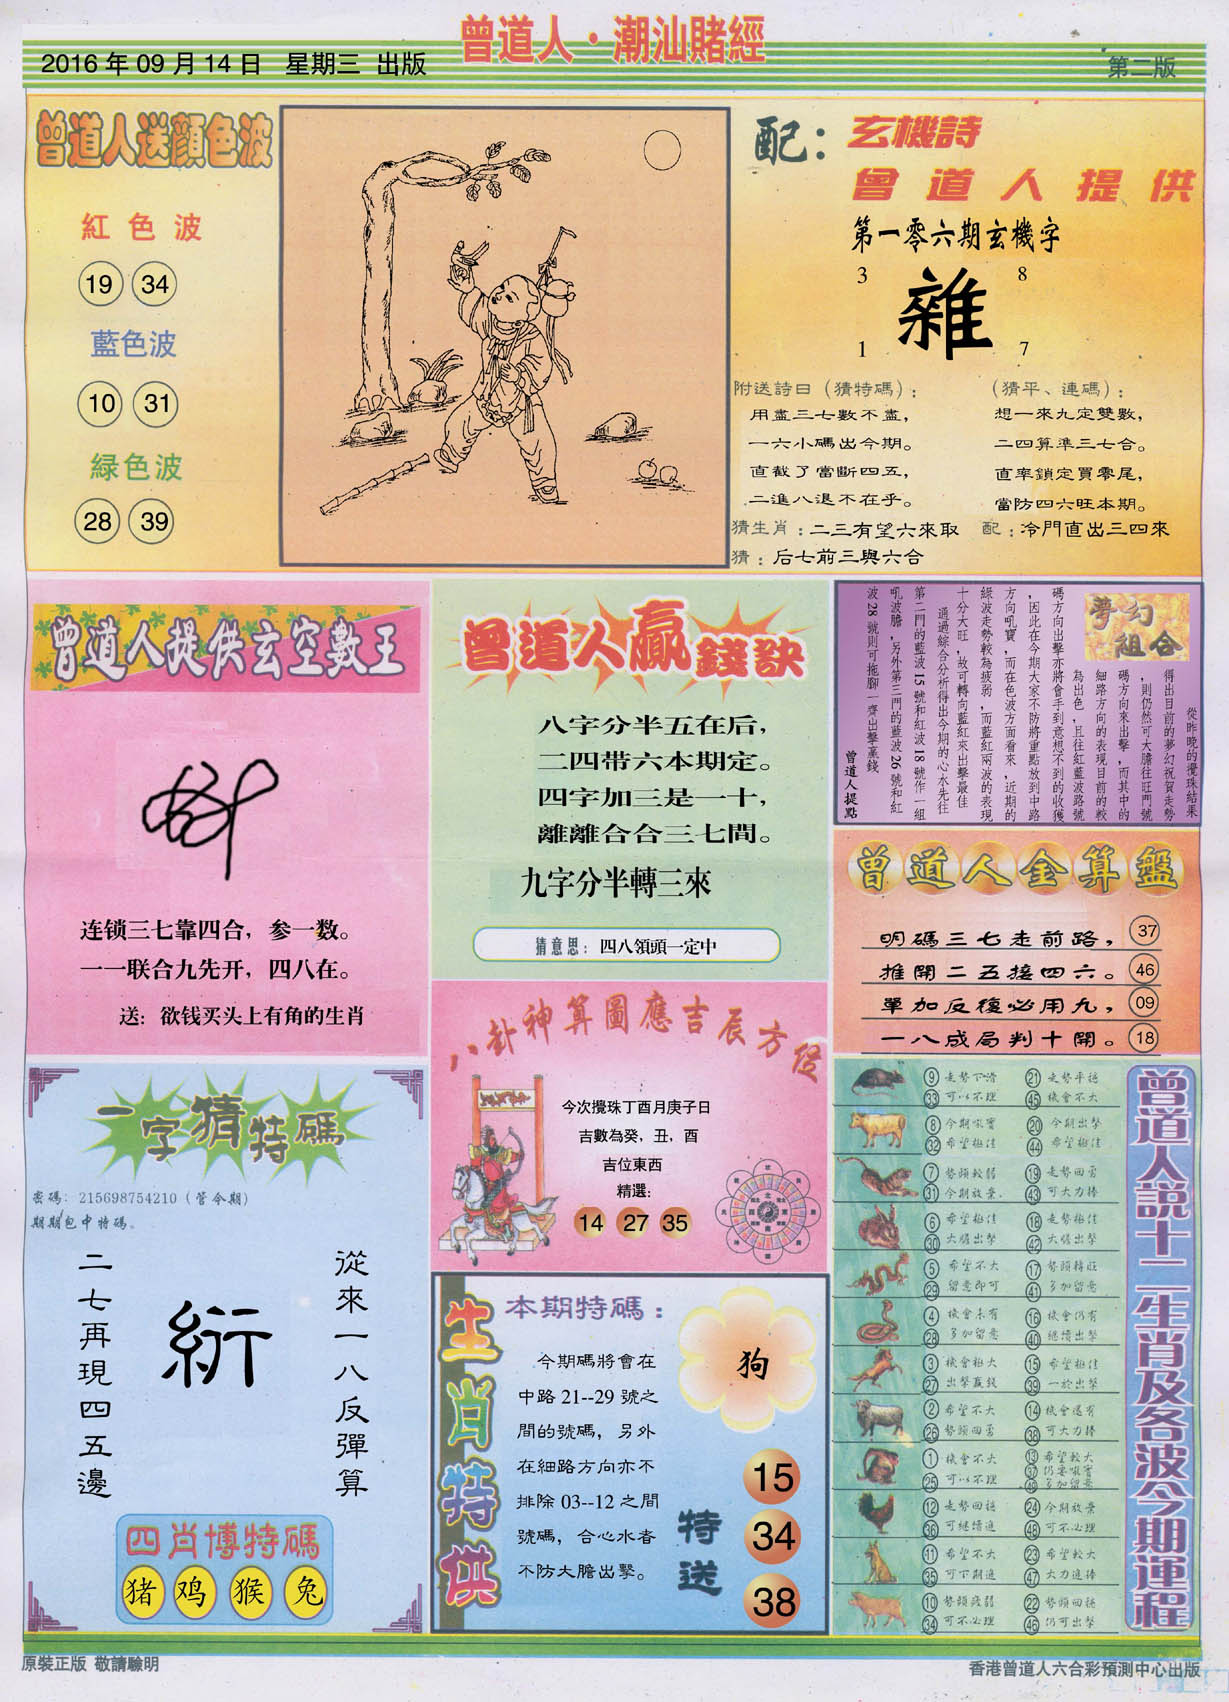 曾道人·潮汕賭經
2016年09月14日 星期三 出版
第二版
曾道人送顏色波
紅色波
19 34
藍色波
10 31
緑色波
28 39
配：玄機詩
曾道人提供
第一零六期玄機字
3 8
雜
1 7
附送詩曰（猜特碼）：
用盡三七數不盡，
一六小碼出今期。
直截了當斷四五，
二進八退不在乎。
（猜平、連碼）：
想一來九定雙數，
二四算準三七合。
直率鎖定買零尾，
當防四六旺本期。
猜生肖：二三有望六來取
配：冷門直出三四來
猜：后七前三與六合
曾道人提供玄空數王
连锁三七靠四合，参一数。
一一联合九先开，四八在。
送：欲钱买头上有角的生肖
曾道人贏錢訣
八字分半五在后，
二四带六本期定。
四字加三是一十，
離離合合三七間。
九字分半轉三來
猜意思：四八領頭一定中
夢幻組合
從昨晚的攪珠結果
得出目前的夢幻祝賀走勢
，則仍然可大膽往旺門號
碼方向來出擊，而其中的
細路方向的表現目前的較
為出色，且往紅藍波路號
碼方向出擊亦將會手到意想不到的收獲
，因此在今期大家不防將重點放到中路
方向吼寶，而在色波方面看來，近期的
綠波走勢較為疲弱，而藍紅兩波的表現
十分大旺，故可轉向藍紅來出擊最佳
通過綜合分析得出今期的心水先往
第二門的藍波15號和紅波18號作一組
吼波膽，另外第三門的藍波26號和紅
波28號則可拖腳一齊出擊贏錢
曾道人提點
曾道人金算盤
明碼三七走前路， 37
推開二五接四六。 46
單加反復必用九， 09
一八成局判十開。 18
八卦神算圖應吉辰方位
今次攪珠丁酉月庚子日
吉數為癸，丑，酉
吉位東西
精選：
14 27 35
一字猜特碼
密碼：215698754210（管令期）
期期包中特碼。
從來一八反彈算
二七再現四五邊
四肖博特碼
猪 鸡 猴 兔
生肖特供
本期特碼：
狗
今期碼將會在
中路21--29號之
間的號碼，另外
在細路方向亦不
排除03--12之間
號碼，合心水者
不防大膽出擊。
特送
15
34
38
曾道人説十二生肖及各波今期運程
9 走勢下滑 21 走勢平穩
33 可以不理 45 機會不大
8 今期吼寶 20 今期出擊
32 希望極佳 44 希望極佳
7 勢頭較弱 19 走勢回勇
31 今期放棄 43 可大力捧
6 希望極佳 18 走勢極佳
30 大膽出擊 42 大膽出擊
5 希望不大 17 勢頭轉旺
29 留意即可 41 多加留意
4 機會未有 16 機會仍有
28 多加留意 40 繼續出擊
3 機會極大 15 希望極佳
27 出擊贏錢 39 一於出擊
2 希望不大 14 機會還有
26 勢頭回勇 38 可大力捧
1 機會不大 13 希望較大
25 可以不理 37 仍要吼寶
49 多加留意
12 走勢回穩 24 今期放棄
36 可繼續追 48 可不必理
11 希望不大 23 希望較大
35 可下期追 47 大力追捧
10 勢頭疲弱 22 勢頭回穩
34 可不必理 46 仍可出擊
原裝正版 敬請驗明
香港曾道人六合彩預測中心出版